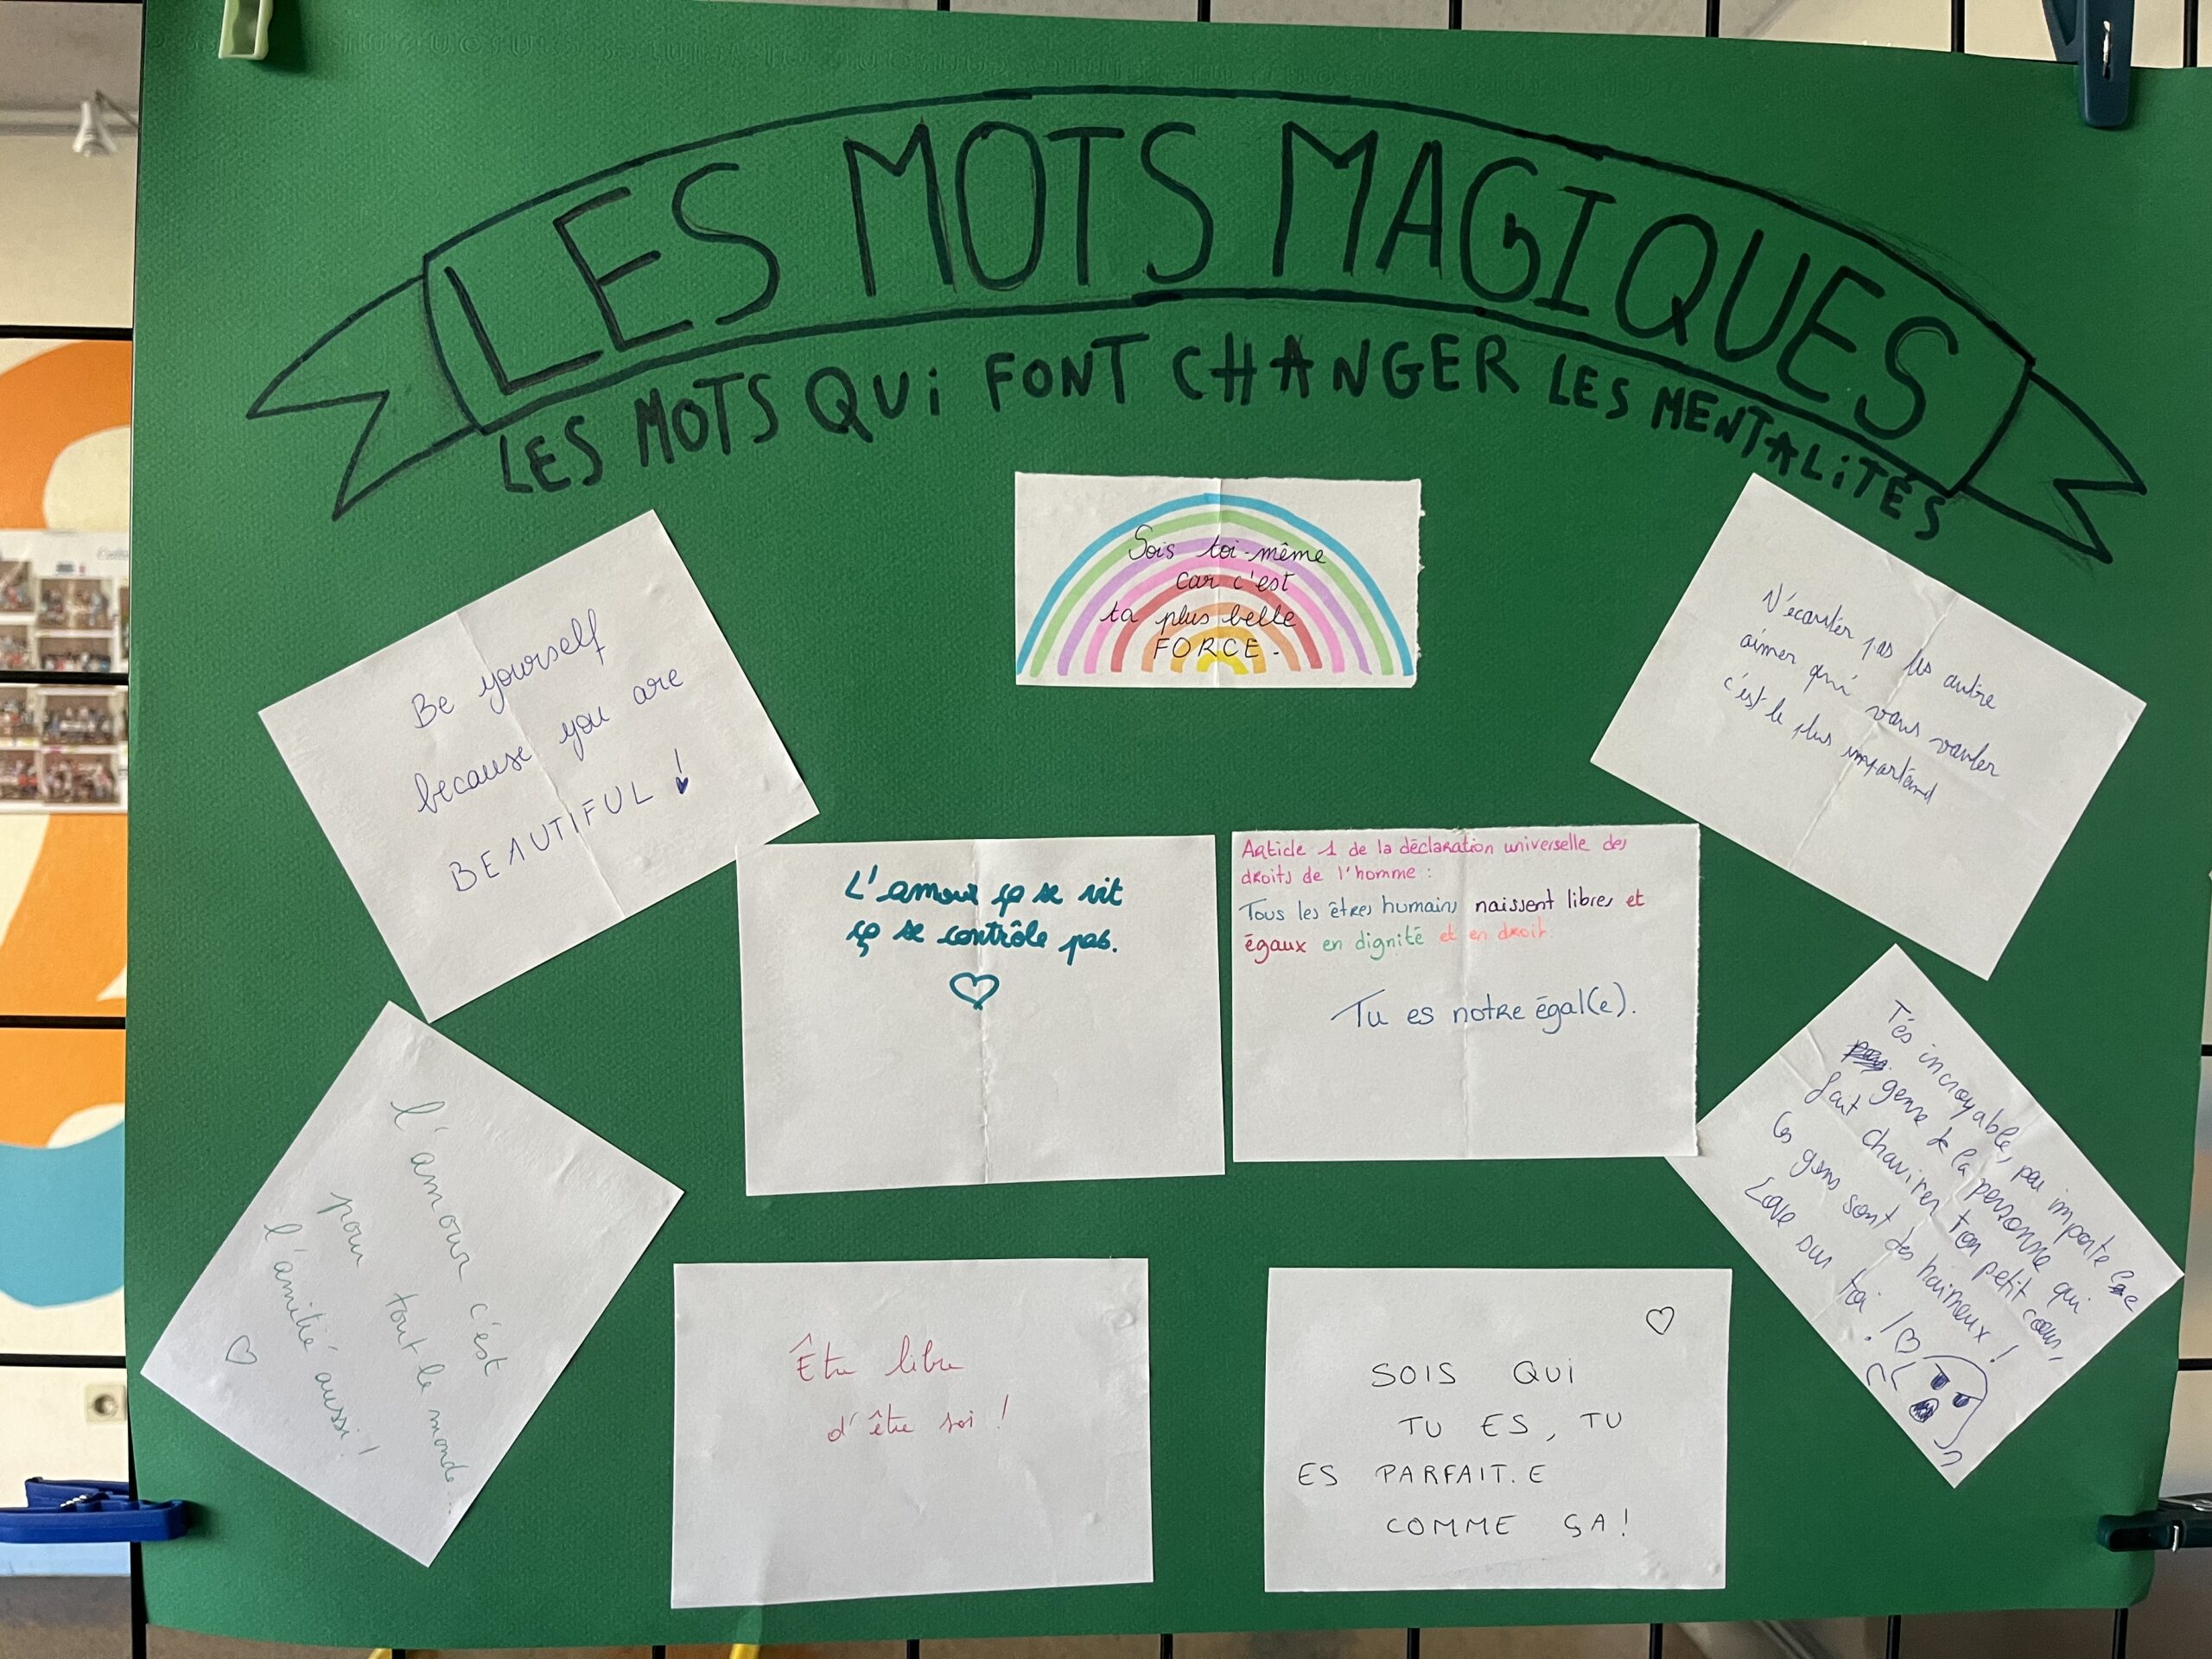 LES MOTS MAGIQUES
LES MOTS QUi FONT CHANGER LES MENTALiTÉS
Sois toi-même
car c'est
ta plus belle
FORCE.
Be yourself
because you are
BEAUTIFUL !
N'écouter pas les autre
aimer qui vous vouler
c'est le plus important
L'amour ça se vit
ça se contrôle pas.
Article 1 de la déclaration universelle des
droits de l'homme :
Tous les êtres humains naissent libres et
égaux en dignité et en droit.
Tu es notre égal(e).
l'amour c'est
pour tout le monde...
l'amitié aussi !
T'es incroyable, peu importe le
genre de la personne qui
fait chavirer ton petit cœur,
les gens sont des haineux !
Love sur toi !
Être libre
d'être soi !
SOIS QUi
TU ES, TU
ES PARFAIT.E
COMME ÇA !